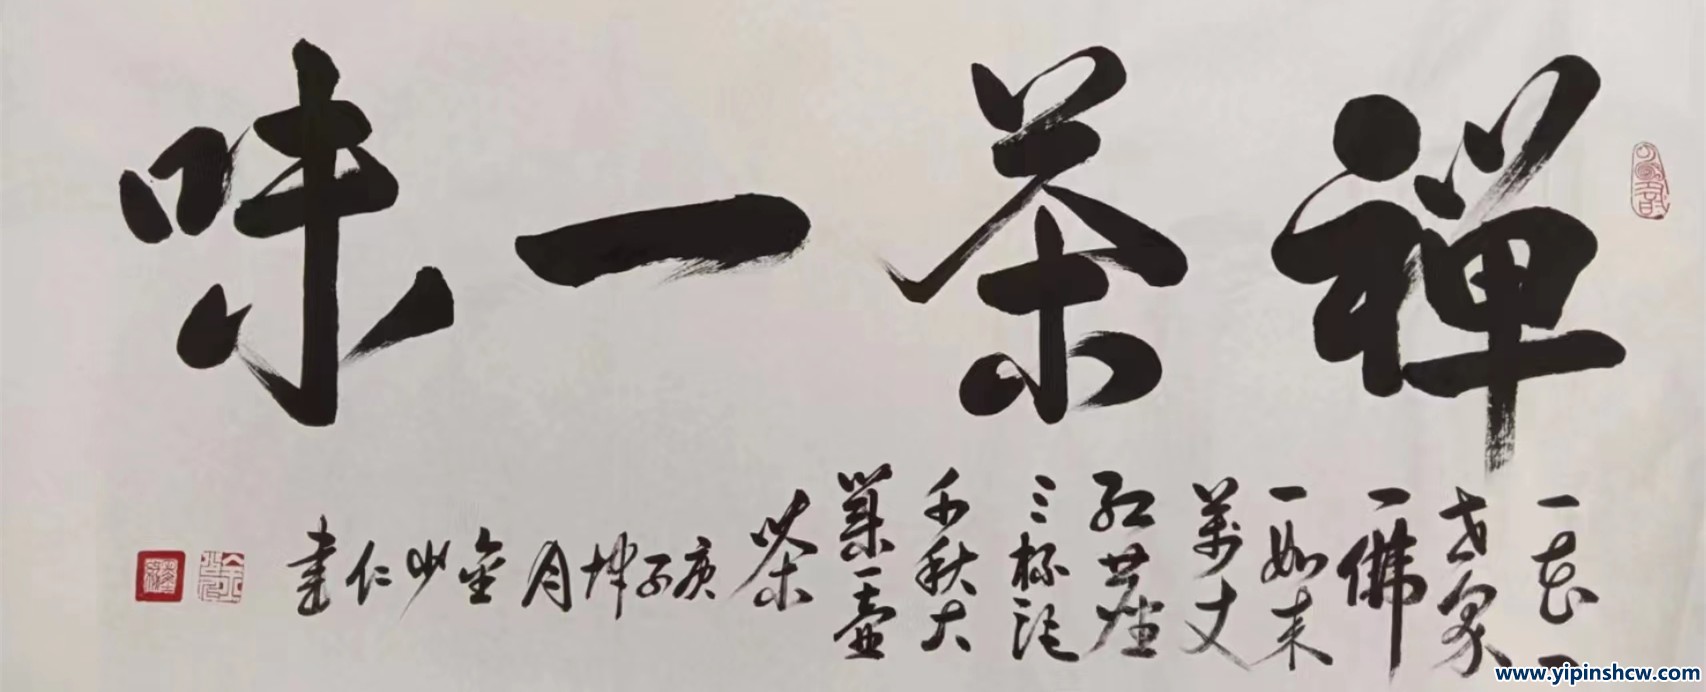 禅茶一味
一花一
世界
一佛
一如来
萬丈
红塵
三杯酒
千秋大
業一壺
茶
庚子坤月金少仁書
www.yipinshcw.com